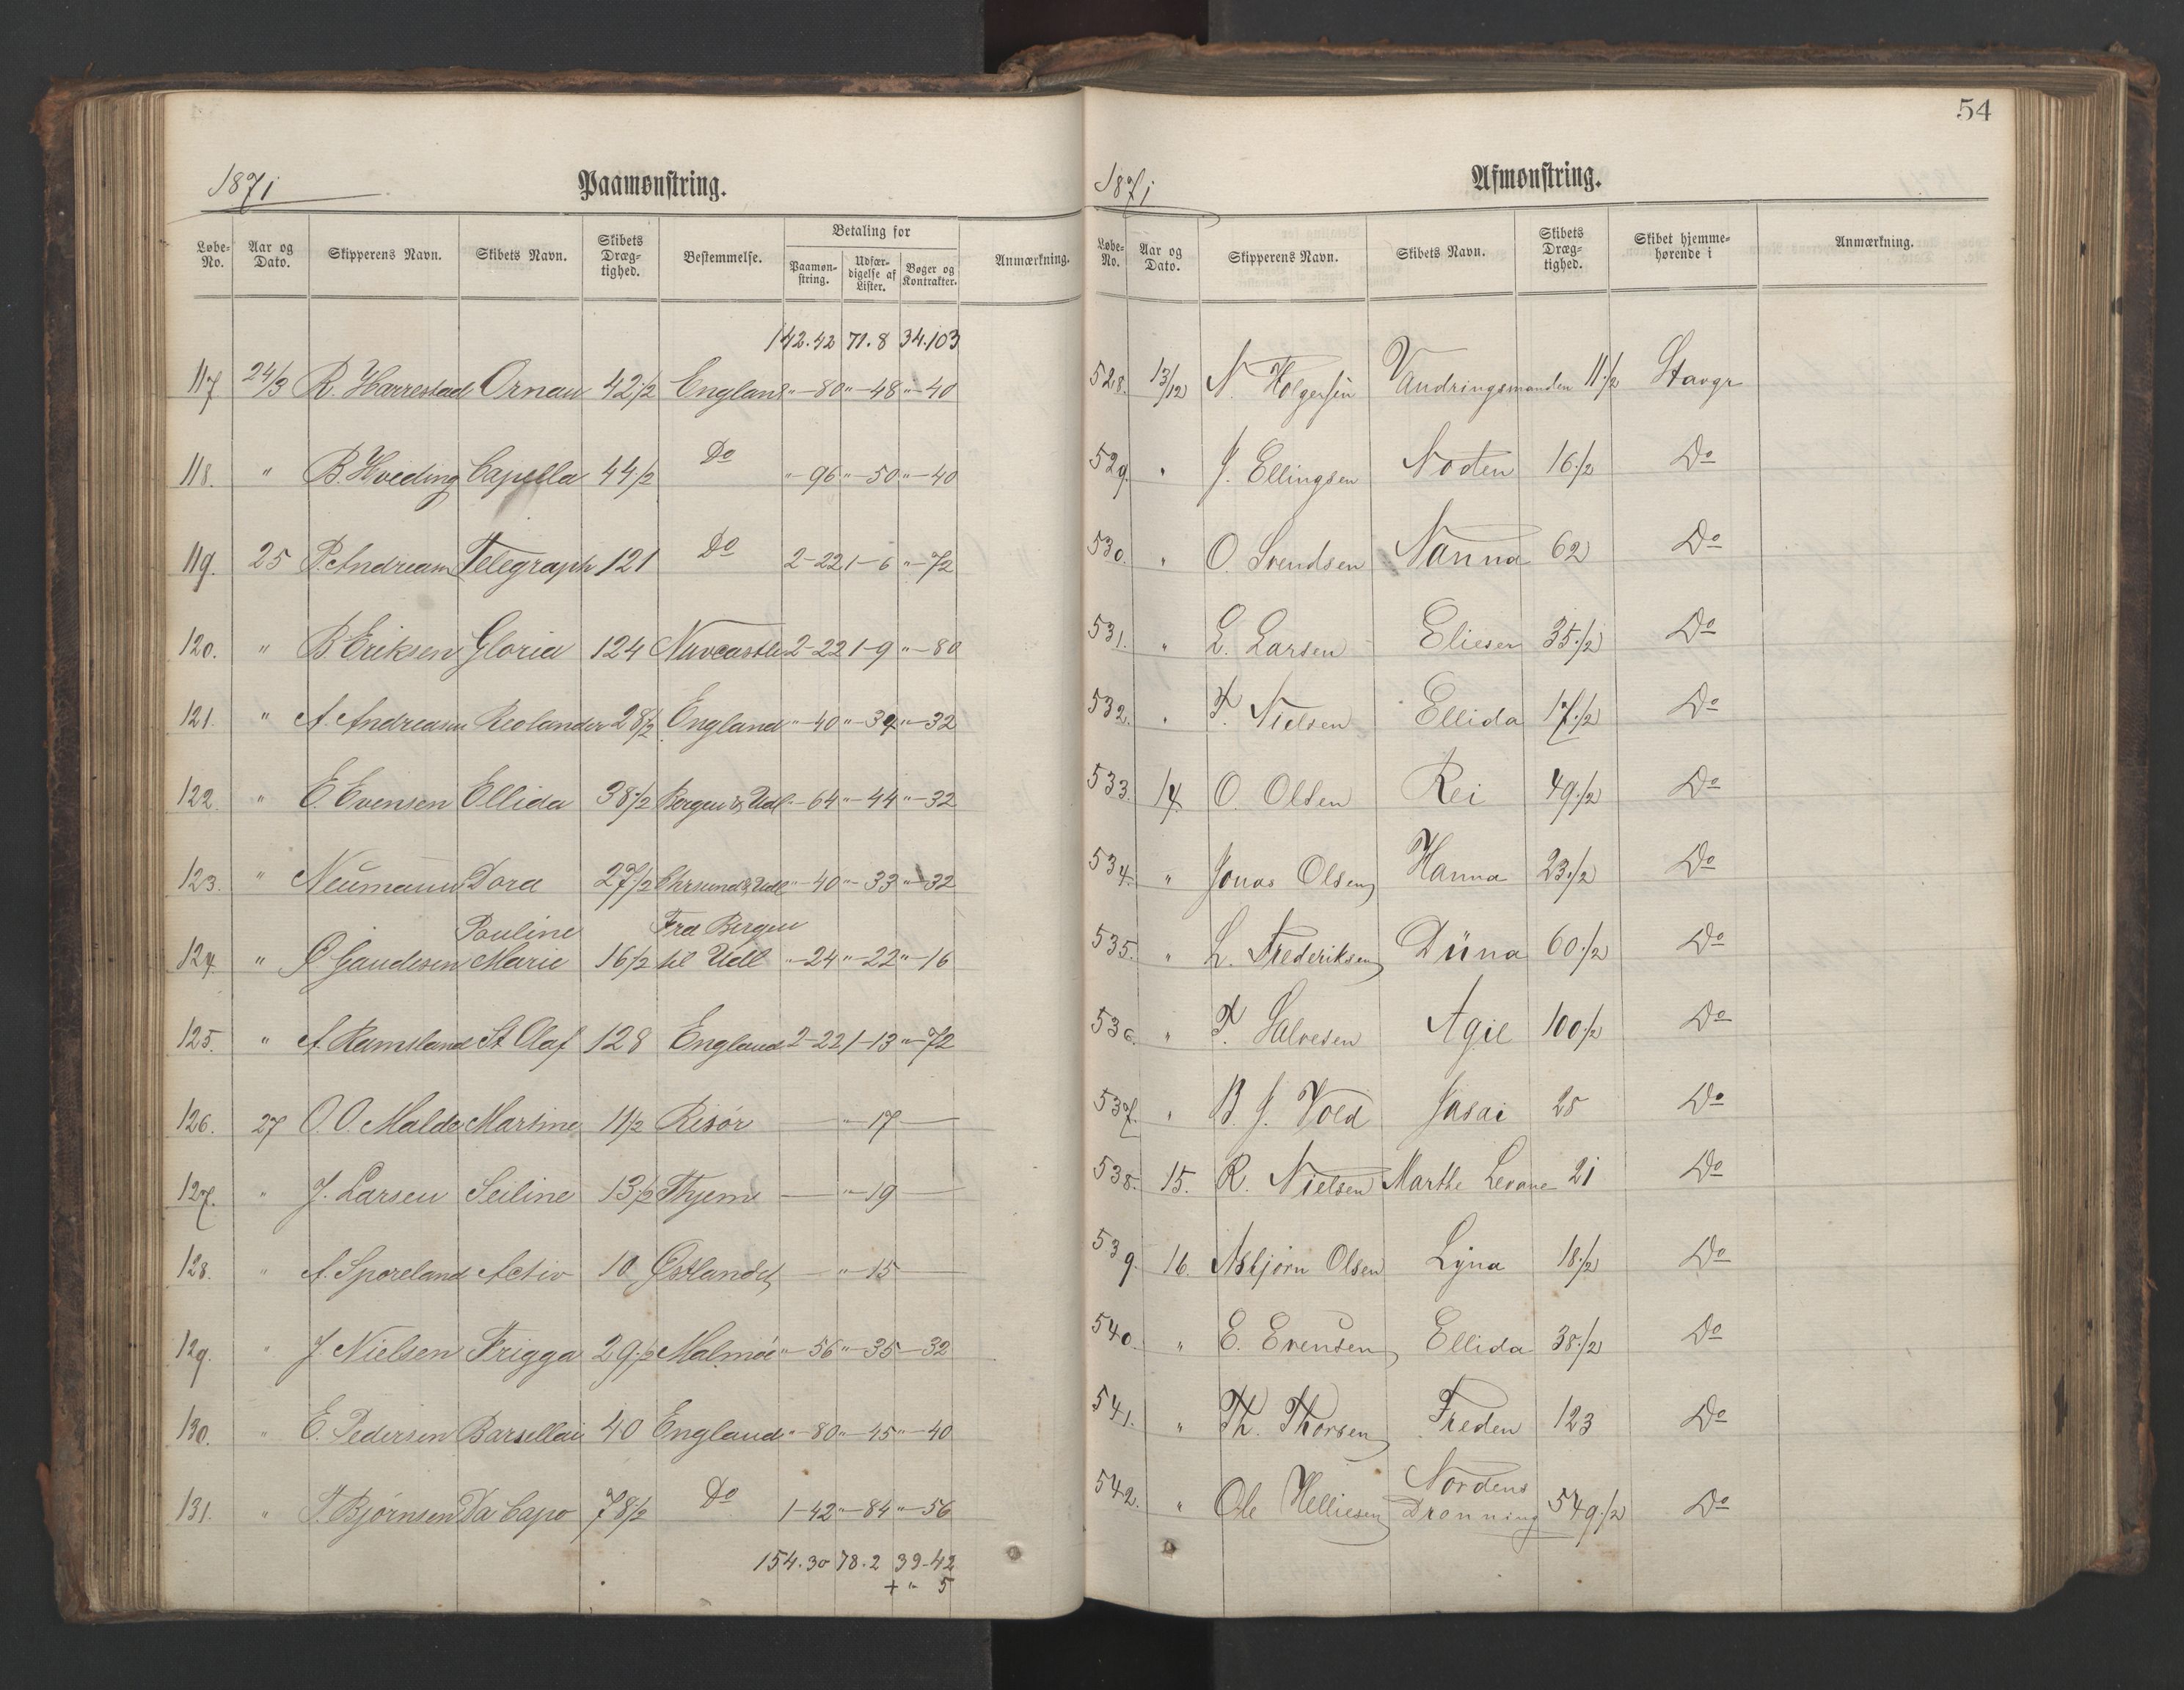 54
1871 Paamønstring.
Løbe-No. Aar og Dato. Skipperens Navn. Skibets Navn. Skibets Dræg-tighed. Bestemmelse. Betaling for Paamøn-string. Udfær-digelse af Lister. Bøger og Kontrakter. Anmærkning.
142.42 71.8 34.103
117 24/3 R. Harrestad Ornau 42 1/2 England "-80 "-48 "-40
118. " B. Hveding Capella 44 1/2 Do "-96 "-50 "-40
119. 25 P. Andreasen Telegraph 121 Do 2-22 1-6 "-72
120. " B. Eriksen Gloria 124 Newcastle 2-22 1-9 "-80
121. " A. Andreasen 28 1/2 England "-40 "-34 "-32
122. " E. Evensen Ellida 38 1/2 Bergen & Udl "-64 "-44 "-32
123. " Neumann Dora 27 1/2 Chrsund & Udl "-40 "-33 "-32
Pauline Fra Bergen
124 " Gaudesen Marie 16 1/2 til Udl "-24 "-22 "-16
125. " A. Ramsland St. Olaf 128 England 2-22 1-13 "-72
126. 27 O. O. Malde Martine 11 1/2 Risør — "-17 —
127. " J. Larsen Seiline 13 1/2 Thjem — "-19 —
128. " A. Sporeland Activ 10 Østlandet — "-15 —
129. " J. Nielsen Frigga 29 1/2 Malmöe "-56 "-35 -32
130. " E. Pedersen Barsellai 40 England "-80 "-45 "-40
131. " T. Bjørnsen Da Capo 78 1/2 Do 1-42 "-84 "-56
154.30 78.2 39-42
+ " 5
1871 Afmønstring.
Løbe-No. Aar og Dato. Skipperens Navn. Skibets Navn. Skibets Dræg-tighed. Skibet hjemme-hørende i Anmærkning.
528. 13/12 N. Holgersen Vandringsmanden 11 1/2 Stavgr
529. " J. Ellingsen Noden 16 1/2 Do
530. " O. Svendsen Nanna 62 Do
531. " L. Larsen Elieser 35 1/2 Do
532. " T. Nielsen Ellida 17 1/2 Do
533. 14 O. Olsen Rei 49 1/2 Do
534. " Jonas Olsen Hanna 23 1/2 Do
535. " L. Frederiksen Düna 60 1/2 Do
536. " T. Salvesen Agie 100 1/2 Do
537. " B. J. Vold Jasai 25 Do
538. 15. R. Nielsen Marthe Levane 21 Do
539. 16. Asbjørn Olsen Lyna 18 1/2 Do
540. " E. Evensen Ellida 38 1/2 Do
541. " Th. Thorsen Freden 123 Do
Nordens
542. " Ole Helliesen Dronning 549 1/2 Do